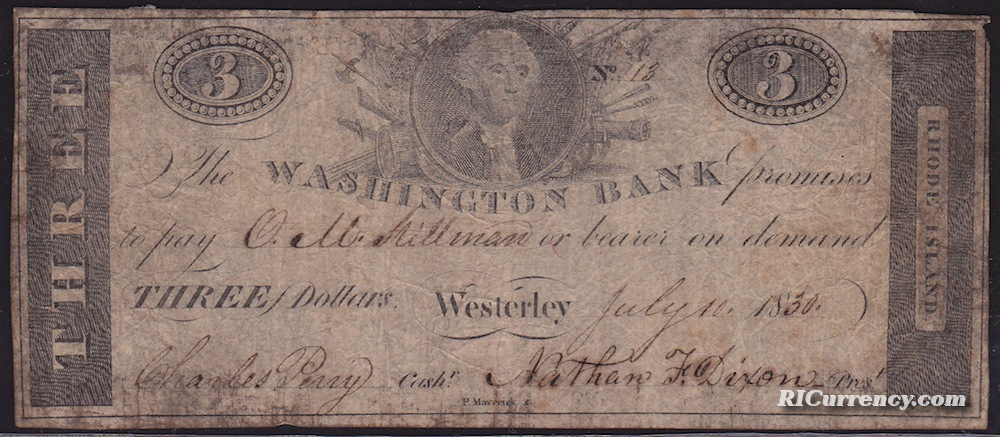 THREE
3
3
No. 13
The WASHINGTON BANK promises
to pay O. M. Stillman or bearer on demand
THREE Dollars. Westerley July 10. 1830.
Charles Perry Cashr. Nathan F. Dixon Prest.
P. Maverick
RHODE ISLAND
RICurrency.com